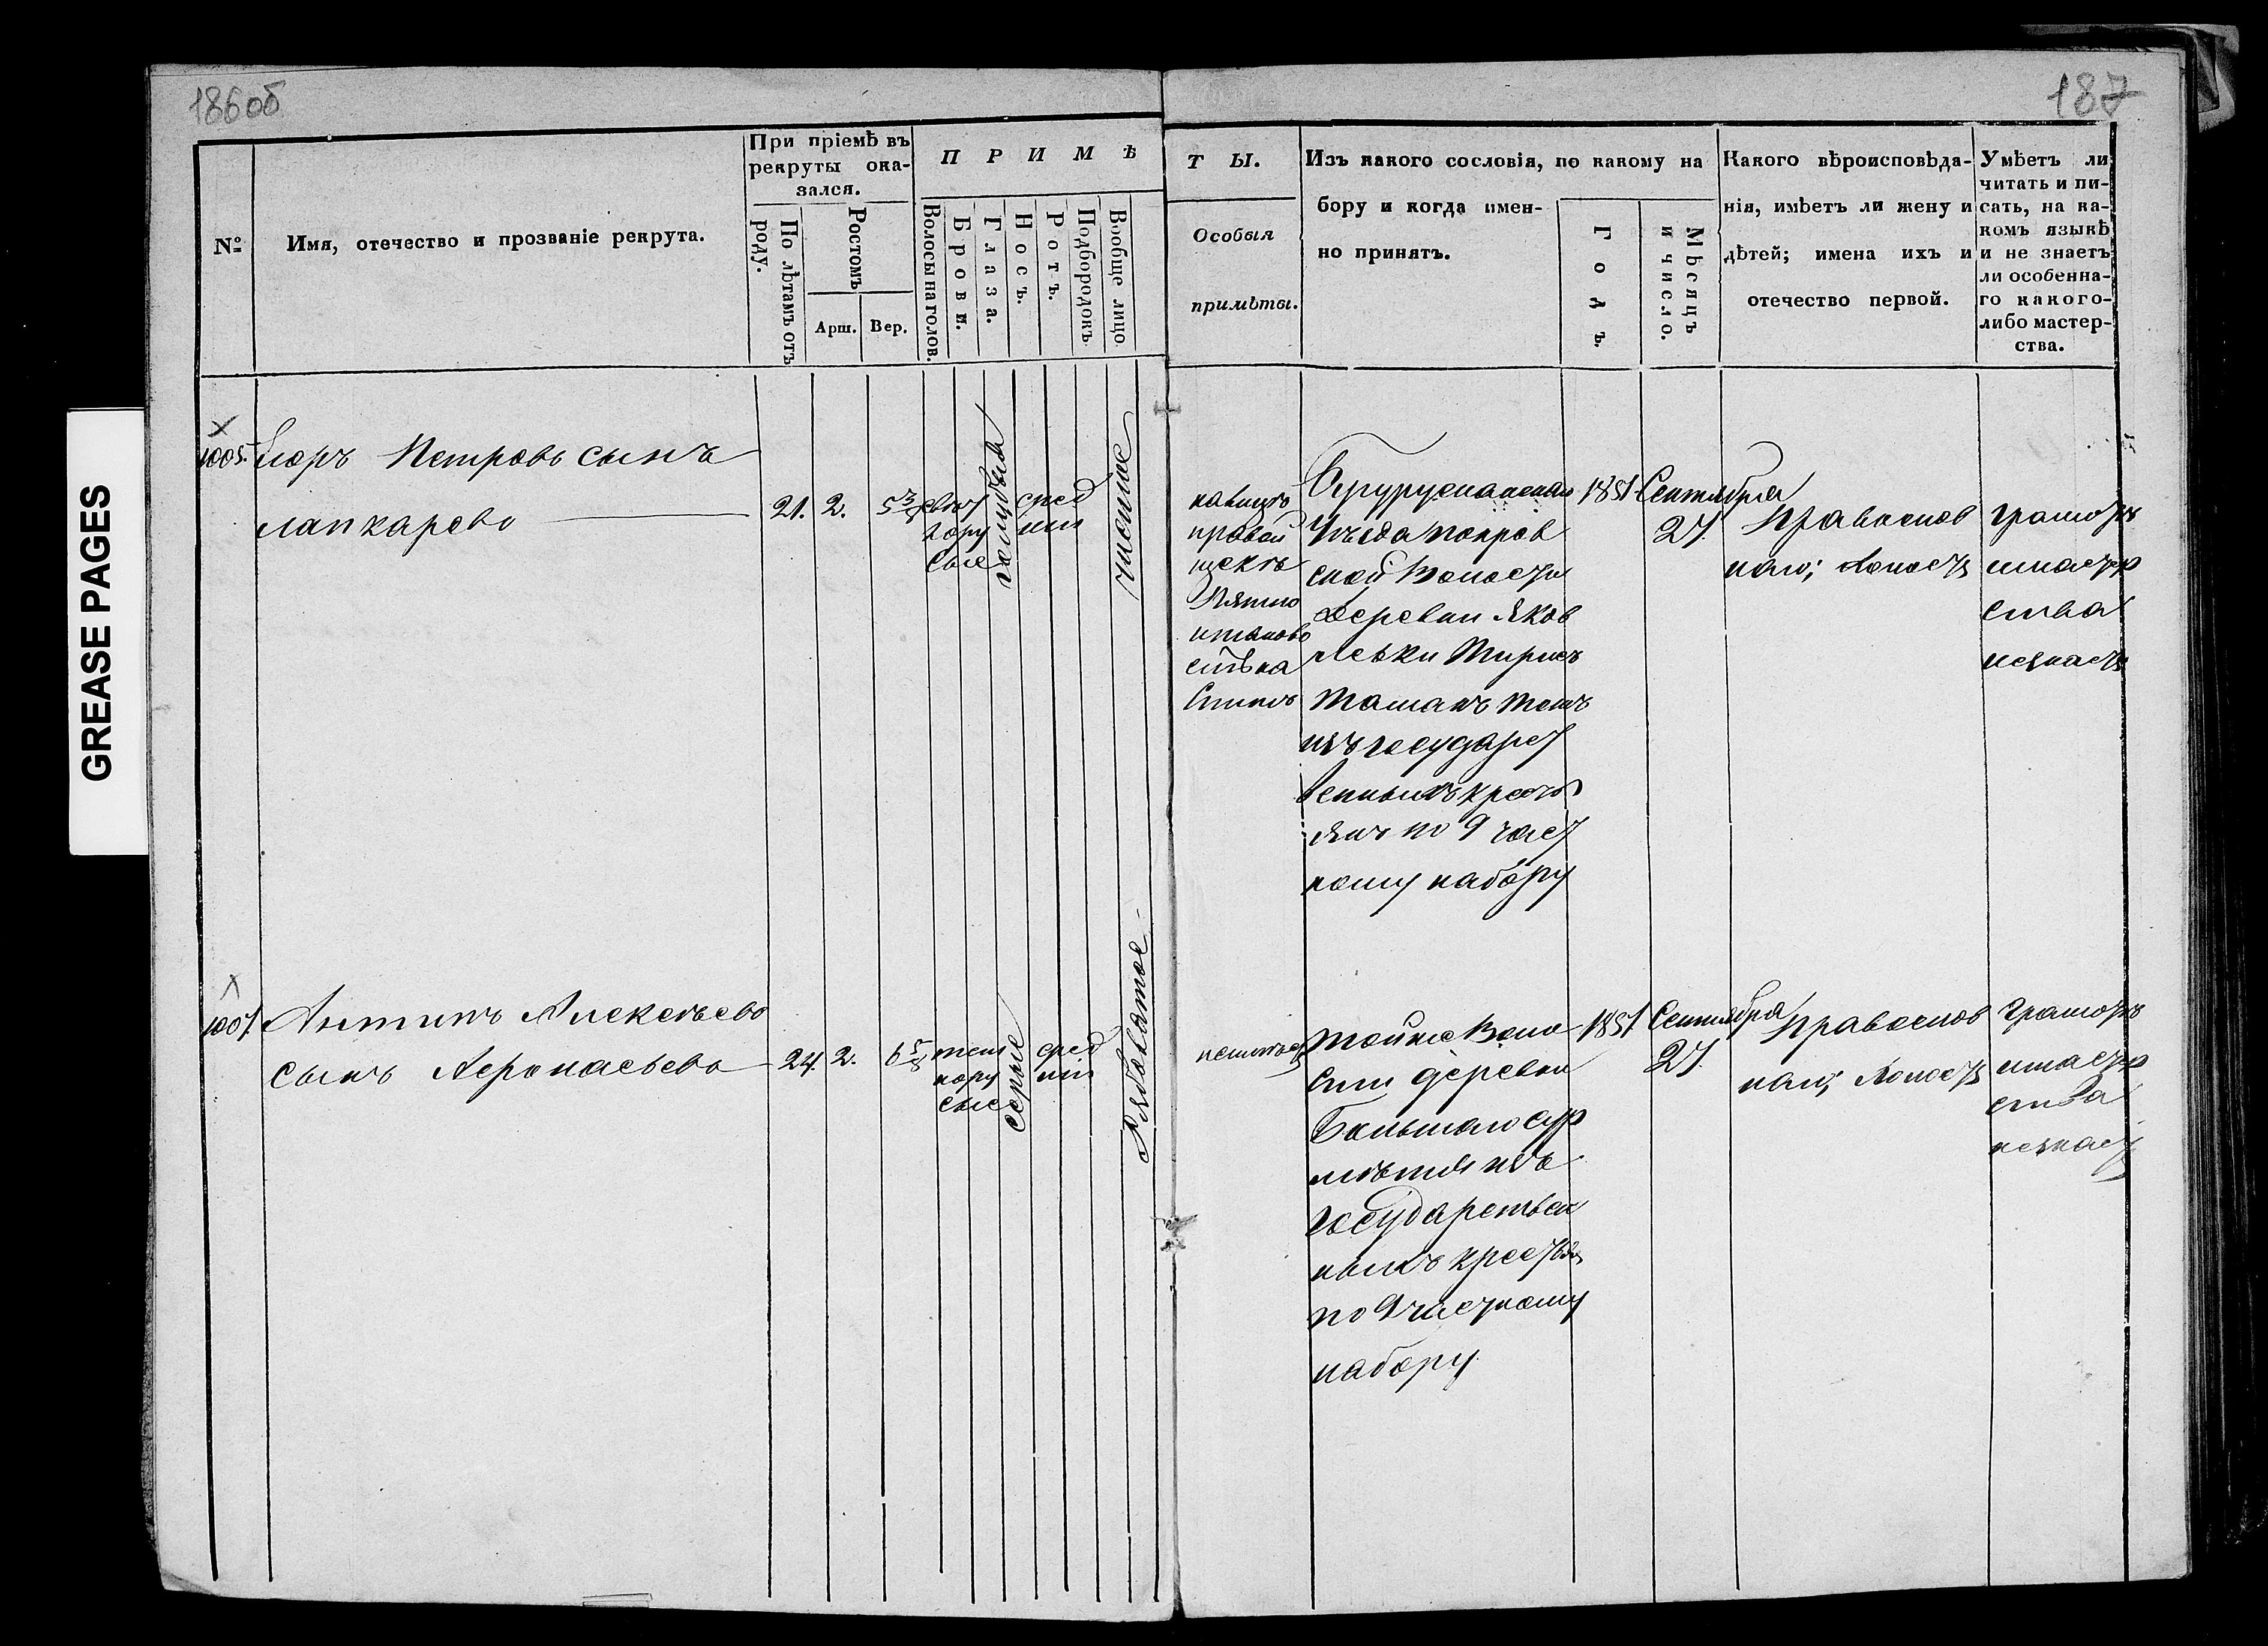 186об
187
GREASE PAGES
№
Имя, отечество и прозваніе рекрута.
При пріемѣ въ
рекруты ока-
зался.
По лѣтамъ отъ
роду.
Ростомъ
Арш.
Вер.
ПРИМѢ
Волосы на голов.
Брови.
Глаза.
Носъ.
Ротъ.
Подбородокъ.
Вообще лицо.
ТЫ.
Особыя
примѣты.
Изъ какого сословія, по какому на
бору и когда имен-
но принятъ.
Годъ.
Мѣсяцъ
и число.
Какого вѣроисповѣда-
нія, имѣетъ ли жену и
дѣтей; имена ихъ и
отечество первой.
Умѣетъ ли
читать и пи-
сать, на ка-
комъ языкѣ
и не знаетъ
ли особенна-
го какого-
либо мастер-
ства.
Петровъ сынъ
лапкарево
21. 2. 5 3/8
русые
голубые
сред
нии
чистое
правой
щекѣ
пятно
Уѣзда покров
ской Волости
деревни Яков
левки
государст
венныхъ кресть
янъ по 9 част
ному набору
1851
Сентября
27.
Православ
наго; холостъ
грамотѣ
имастер
ства
незнаетъ
1007.
Антипъ Алексѣевъ
сынъ
24. 2. 6 5/8
темно
русые
серые
сред
нии
Рябоватое
неимѣетъ
тойже Воло
сти деревни
Большаго
изъ
государствен
ныхъ крестьянъ
по 9 частному
набору
1851
Сентября
27.
Православ
наго; Холостъ
грамотѣ
имастер
ства
незнаетъ